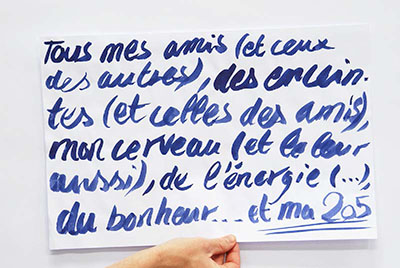 Tous mes amis (et ceux
des autres), des encein-
tes (et celles des amis),
mon cerveau (et le leur
aussi), de l'énergie (...),
du bonheur... et ma 205